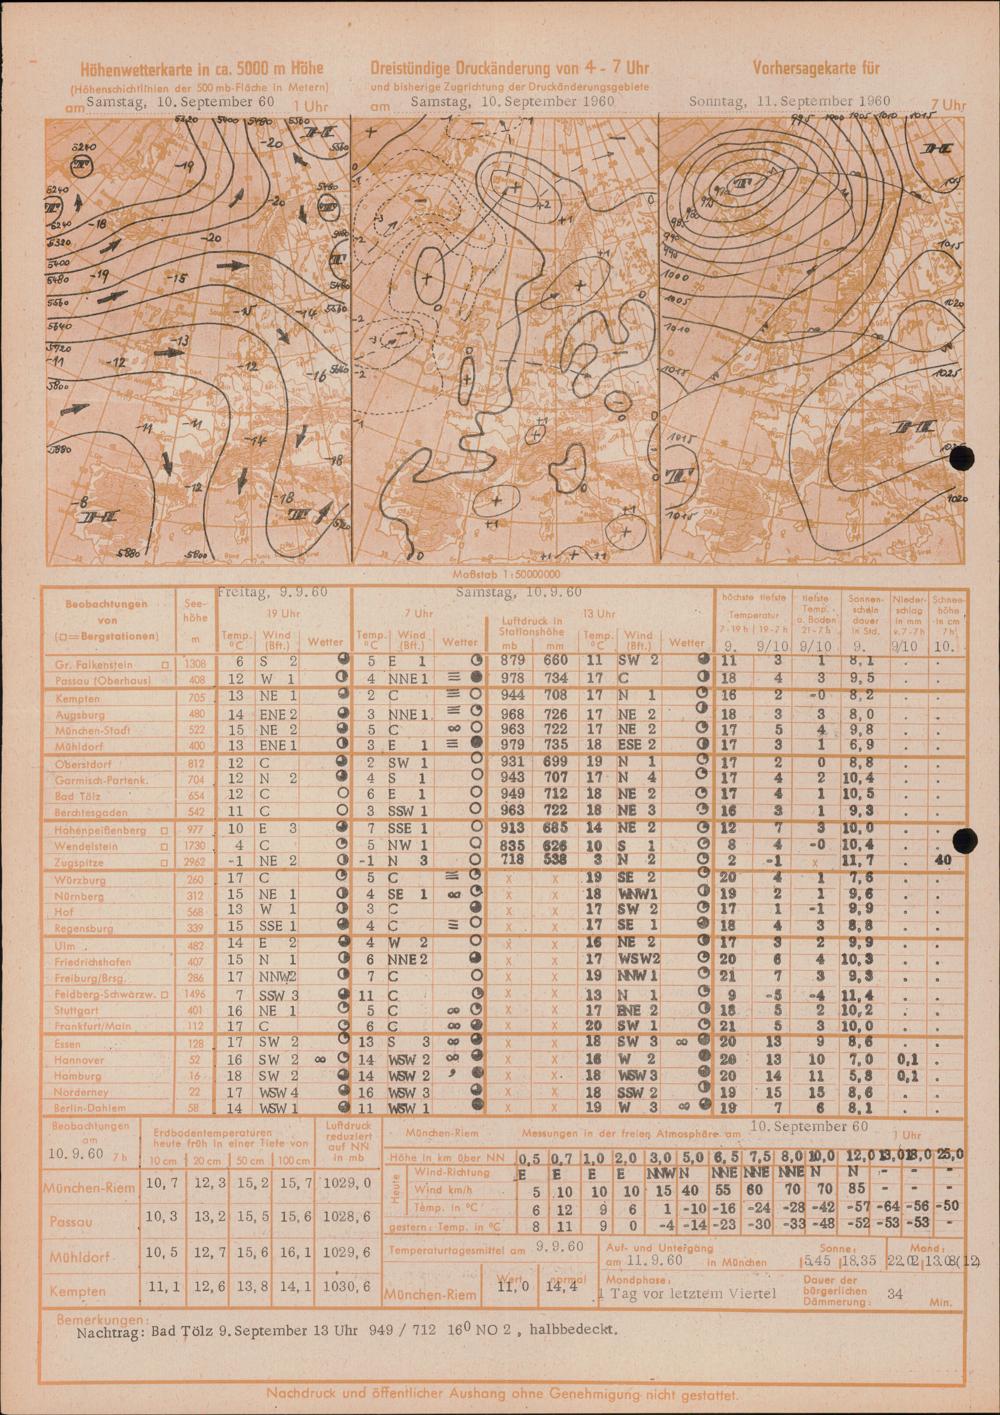 Höhenwetterkarte in ca. 5000 m Höhe
(Höhenschichtlinien der 500 mb-Fläche in Metern)
am Samstag, 10. September 60 1 Uhr
Dreistündige Druckänderung von 4 - 7 Uhr
und bisherige Zugrichtung der Druckänderungsgebiete
am Samstag, 10. September 1960
Vorhersagekarte für
Sonntag, 11. September 1960 7 Uhr
Maßstab 1:50000000
Beobachtungen von (□=Bergstationen) Seehöhe m
Freitag, 9. 9. 60 Samstag, 10. 9. 60
19 Uhr 7 Uhr 13 Uhr
Temp. °C Wind (Bft.) Wetter Temp. °C Wind (Bft.) Wetter Luftdruck in Stationshöhe mb mm Temp. °C Wind (Bft.) Wetter
höchste tiefste Temperatur 7-19 h 19-7 h tiefste Temp. a. Boden 21-7 h Sonnenscheindauer in Std. Niederschlag in mm v. 7-7 h Schneehöhe in cm 7 h
9. 9/10 9/10 9. 9/10 10.
Gr. Falkenstein □ 1308 6 S 2 5 E 1 879 660 11 SW 2 11 3 1 8,1 . .
Passau (Oberhaus) 408 12 W 1 4 NNE 1 ≡ 978 734 17 C 18 4 3 9,5 . .
Kempten 705 13 NE 1 2 C ≡ 944 708 17 N 1 16 2 -0 8,2 . .
Augsburg 480 14 ENE 2 3 NNE 1 ≡ 968 726 17 NE 2 18 3 3 8,0 . .
München-Stadt 522 15 NE 2 5 C ∞ 963 722 17 NE 2 17 5 4 9,8 . .
Mühldorf 400 13 ENE 1 3 E 1 ≡ 979 735 18 ESE 2 17 3 1 6,9 . .
Oberstdorf 812 12 C 2 SW 1 931 699 19 N 1 17 2 0 8,8 . .
Garmisch-Partenk. 704 12 N 2 4 S 1 943 707 17 N 4 17 4 2 10,4 . .
Bad Tölz 654 12 C 6 E 1 949 712 18 NE 2 17 4 1 10,5 . .
Berchtesgaden 542 11 C 3 SSW 1 963 722 18 NE 3 16 3 1 9,3 . .
Hohenpeißenberg □ 977 10 E 3 7 SSE 1 913 685 14 NE 2 12 7 3 10,0 . .
Wendelstein □ 1730 4 C 5 NW 1 835 626 10 S 1 8 4 -0 10,4 . .
Zugspitze □ 2962 -1 NE 2 -1 N 3 718 538 3 N 2 2 -1 x 11,7 . 40
Würzburg 260 17 C 5 C ≡ x x 19 SE 2 20 4 1 7,6 . .
Nürnberg 312 15 NE 1 4 SE 1 ∞ x x 18 WNW1 19 2 1 9,6 . .
Hof 568 13 W 1 3 C x x 17 SW 2 17 1 -1 9,9 . .
Regensburg 339 15 SSE 1 4 C ≡ x x 17 SE 1 18 4 3 8,8 . .
Ulm 482 14 E 2 4 W 2 x x 16 NE 2 17 3 2 9,9 . .
Friedrichshafen 407 15 N 1 6 NNE 2 x x 17 WSW2 20 6 4 10,3 . .
Freiburg/Brsg. 286 17 NNW2 7 C x x 19 NNW 1 21 7 3 9,3 . .
Feldberg-Schwarzw. □ 1496 7 SSW 3 11 C x x 13 N 1 9 -5 -4 11,4 . .
Stuttgart 401 16 NE 1 5 C ∞ x x 17 ENE 2 18 5 2 10,2 . .
Frankfurt/Main 112 17 C 6 C ∞ x x 20 SW 1 21 5 3 10,0 . .
Essen 128 17 SW 2 13 S 3 ∞ x x 18 SW 3 ∞ 20 13 9 8,6 . .
Hannover 52 16 SW 2 ∞ 14 WSW 2 ∞ x x 16 W 2 20 13 10 7,0 0,1 .
Hamburg 16 18 SW 2 14 WSW 2 , x x 18 WSW 3 20 14 11 5,8 0,1 .
Norderney 22 17 WSW 4 16 WSW 3 x x 18 SSW 2 19 15 15 8,6 . .
Berlin-Dahlem 58 14 WSW 1 11 WSW 1 x x 19 W 3 ∞ 19 7 6 8,1 . .
Beobachtungen am 10. 9. 60 7 h
Erdbodentemperaturen heute früh in einer Tiefe von
10 cm 20 cm 50 cm 100 cm
Luftdruck reduziert auf NN in mb
München-Riem 10,7 12,3 15,2 15,7 1029,0
Passau 10,3 13,2 15,5 15,6 1028,6
Mühldorf 10,5 12,7 15,6 16,1 1029,6
Kempten 11,1 12,6 13,8 14,1 1030,6
München-Riem Messungen in der freien Atmosphäre am 10. September 60 1 Uhr
Höhe in km über NN 0,5 0,7 1,0 2,0 3,0 5,0 6,5 7,5 8,0 10,0 12,0 13,0 18,0 25,0
Heute
Wind-Richtung E E E E NNW N NNE NNE NNE N N - - -
Wind km/h 5 10 10 10 15 40 55 60 70 70 85 - - -
Temp. in °C 6 12 9 6 1 -10 -16 -24 -28 -42 -57 -64 -56 -50
gestern: Temp. in °C 8 11 9 0 -4 -14 -23 -30 -33 -48 -52 -53 -53 -
Temperaturtagesmittel am 9. 9. 60
München-Riem Wert 11,0 normal 14,4
Auf- und Untergang am 11. 9. 60 in München
Sonne: 5.45 18.35 Mond: 22.02 13.08(12)
Mondphase: 1 Tag vor letztem Viertel
Dauer der bürgerlichen Dämmerung: 34 Min.
Bemerkungen:
Nachtrag: Bad Tölz 9. September 13 Uhr 949 / 712 16⁰ NO 2 , halbbedeckt.
Nachdruck und öffentlicher Aushang ohne Genehmigung nicht gestattet.